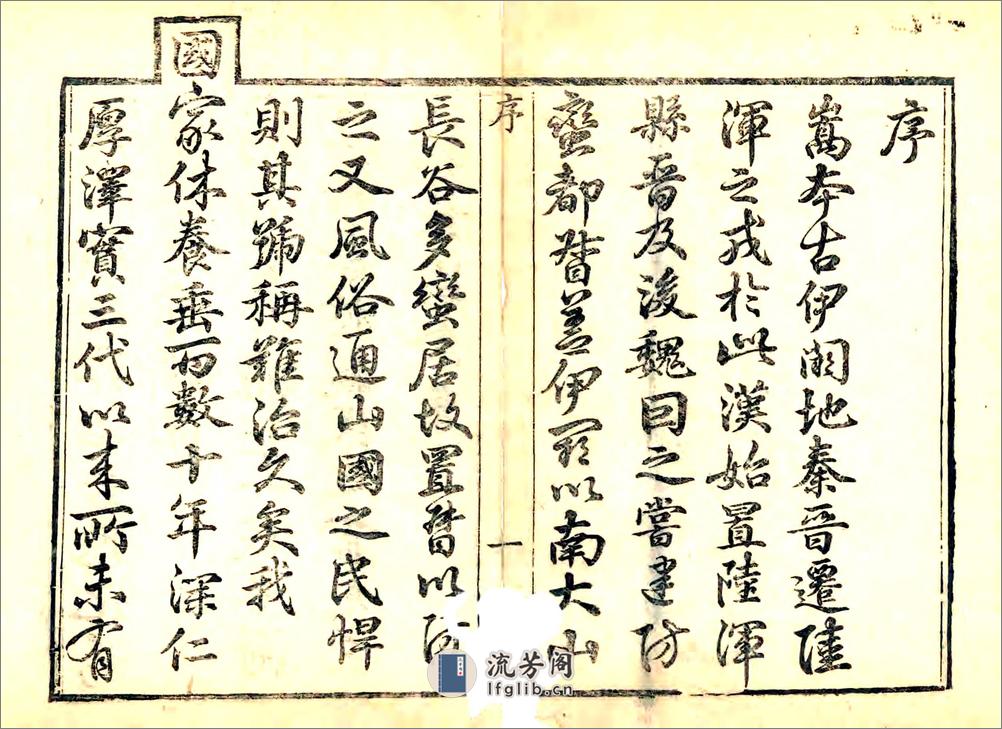 序
嵩本古伊闕地秦晉遷陸
渾之戎於此漢始置陸渾
縣晉及後魏因之嘗建防
蠻都督蓋伊闕以南大山
序
一
長谷多蠻居故置督以防
之又風俗通山國之民悍
則其號稱難治久矣我
國
家休養垂百數十年深仁
厚澤實三代以来所未有
流芳阁
lfglib.cn